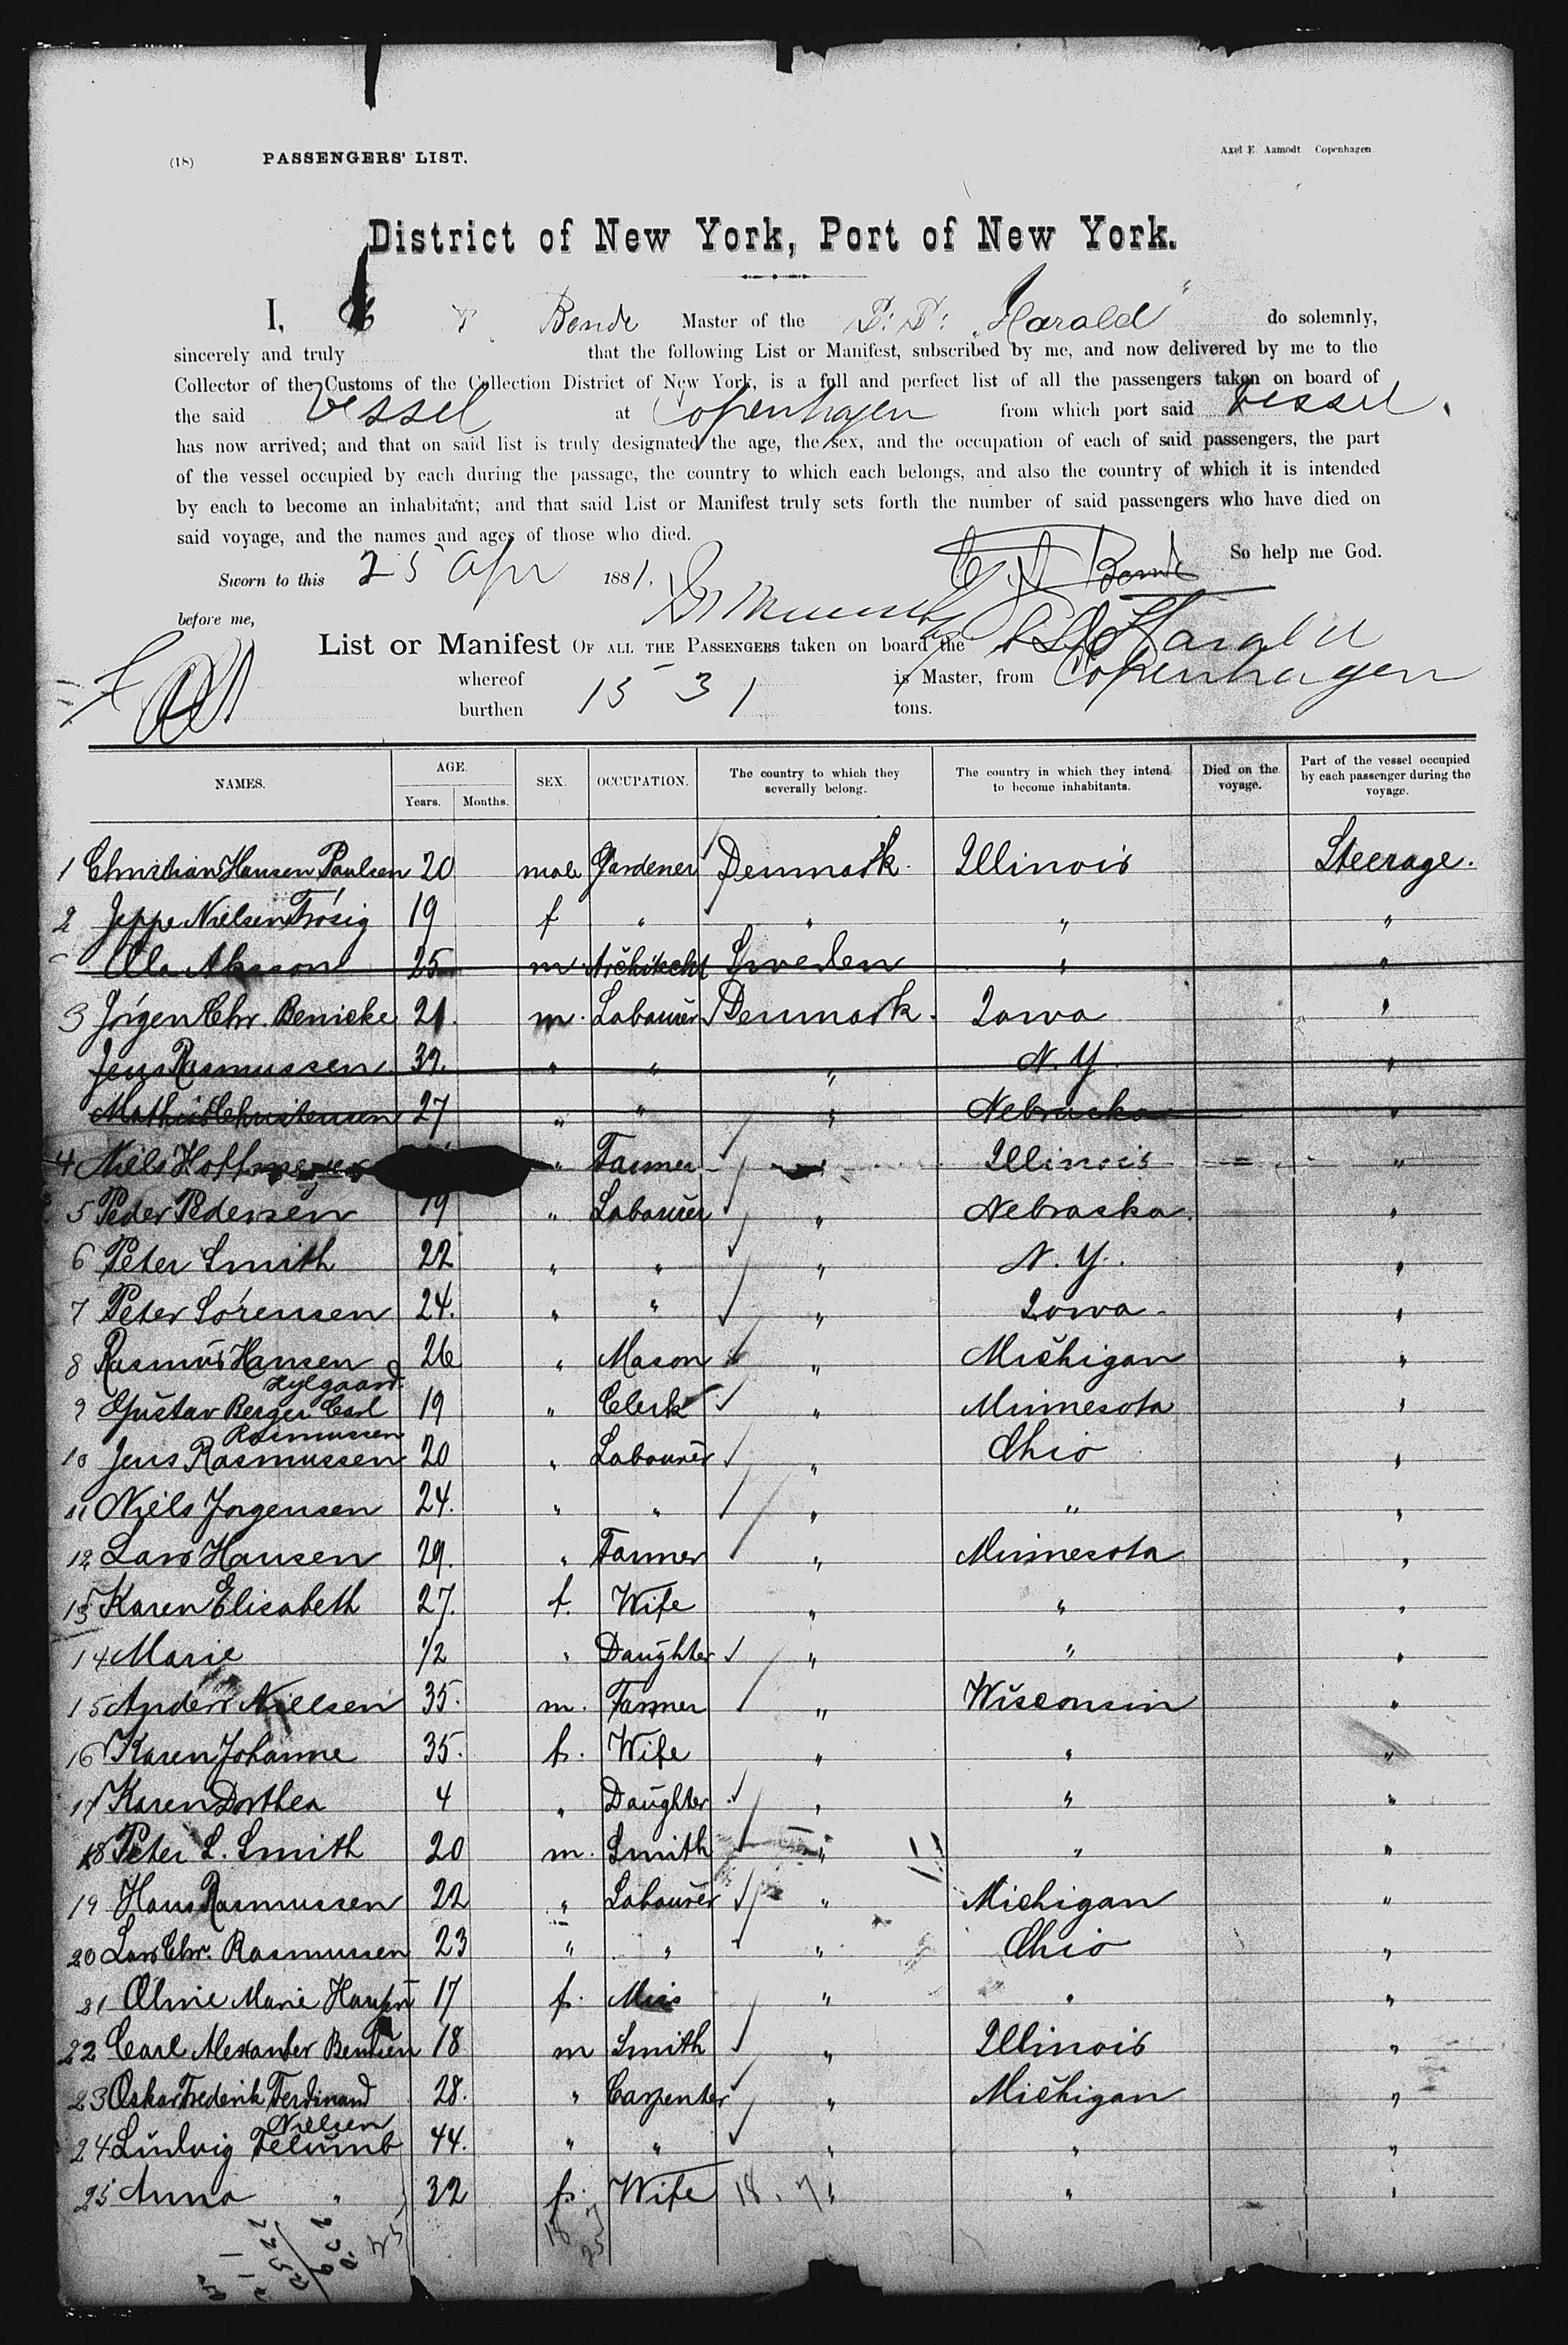 (18) PASSENGERS' LIST. Axel E. Aamodt Copenhagen
District of New York, Port of New York.
I, Bende Master of the S. S. "Harald" do solemnly,
sincerely and truly that the following List or Manifest, subscribed by me, and now delivered by me to the
Collector of the Customs of the Collection District of New York, is a full and perfect list of all the passengers taken on board of
the said Vessel at Copenhagen from which port said Vessel
has now arrived; and that on said list is truly designated the age, the sex, and the occupation of each of said passengers, the part
of the vessel occupied by each during the passage, the country to which each belongs, and also the country of which it is intended
by each to become an inhabitant; and that said List or Manifest truly sets forth the number of said passengers who have died on
said voyage, and the names and ages of those who died.
So help me God.
Sworn to this 25 Apr 1881. Bende
before me,
List or Manifest OF ALL THE PASSENGERS taken on board the Harald
whereof is Master, from Copenhagen
burthen 1531 tons.
NAMES. AGE. Years. Months. SEX. OCCUPATION. The country to which they severally belong. The country in which they intend to become inhabitants. Died on the voyage. Part of the vessel occupied by each passenger during the voyage.
1 Christian Hansen Paulsen 20 male Gardener Denmark. Illinois Steerage.
2 Jeppe Nielsen Frösig 19 f " " " "
Ola Akesson 25 m. Architeckt Sweden " "
3 Jörgen Chr. Benicke 21. m. Labourer Denmark. Iowa "
Jens Rasmussen 32. " " " N. Y. "
Mathias Christensen 27 " " " Nebraska "
4 Niels " Farmer " Illinois "
5 Peder Pedersen 19 " Labourer " Nebraska. "
6 Peter Smith 22 " " " N. Y. "
7 Peter Sörensen 24. " " " Iowa "
8 Rasmus Hansen 26 " Mason " Michigan "
Hylgaard.
9 Gustav Berger Carl 19 " Clerk " Minnesota "
Rasmussen
10 Jens Rasmussen 20 " Labourer " Ohio "
11 Niels Jorgensen 24. " " " " "
12 Lars Hansen 29. " Farmer " Minnesota "
13 Karen Elisabeth 27. f. Wife " " "
14 Marie 1/2 " Daughter " " "
15 Anders Nielsen 35. m. Farmer " Wisconsin "
16 Karen Johanne 35. f. Wife " " "
17 Karen Dorthea 4 " Daughter " " "
18 Peter L. Smith 20 m. Smith " " "
19 Hans Rasmussen 22 " Labourer " Michigan "
20 Lars Chr. Rasmussen 23 " " " Ohio "
21 Marie Hansen 17 f. Miss " " "
22 Carl Alexander Bentsen 18 m Smith " Illinois "
23 Oskar Frederik Ferdinand 28. " Carpenter " Michigan "
Nielsen
24 Ludvig 44. " " " " "
25 Anna " 32 f. Wife 18. 7 " " "